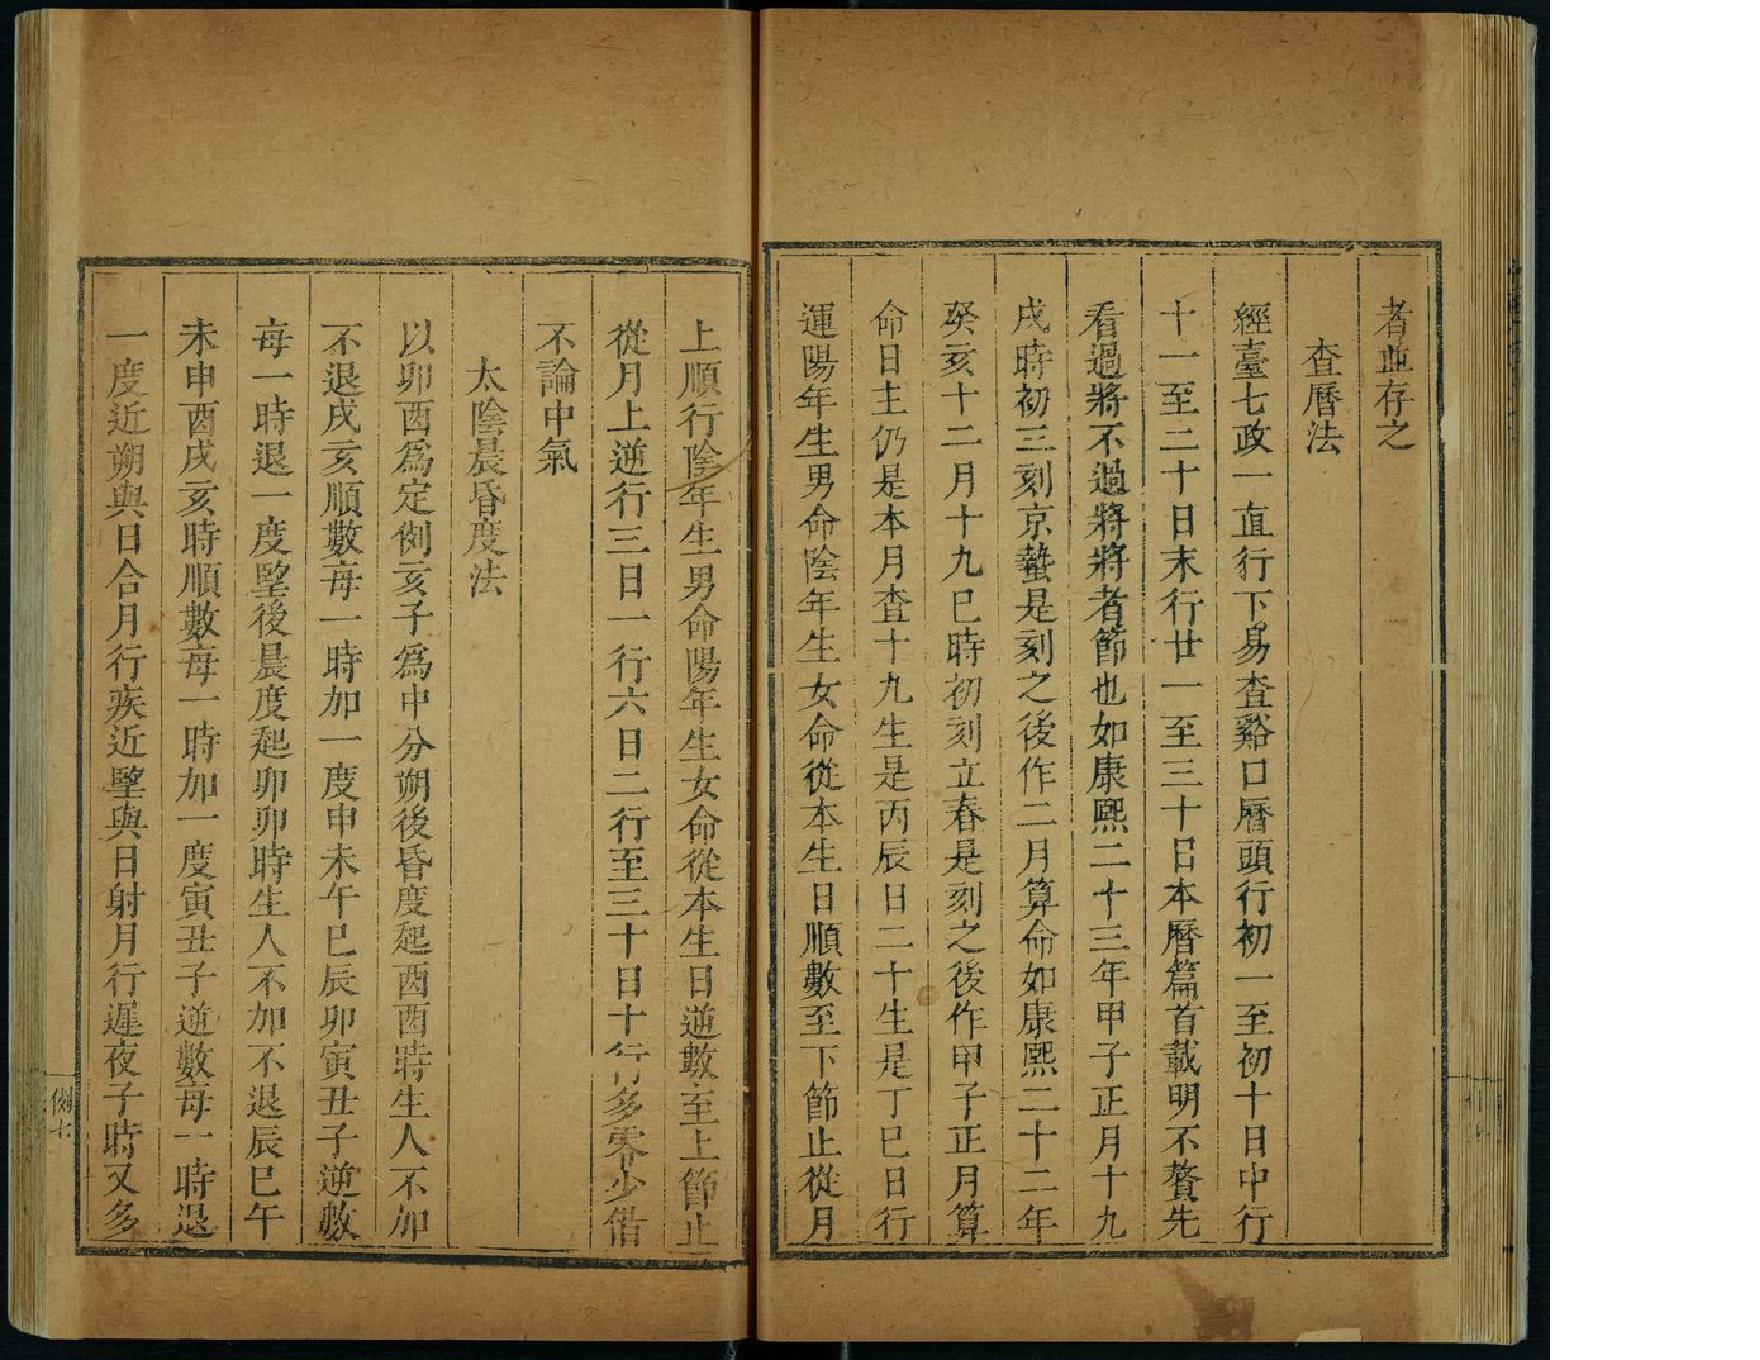 者並存之
查曆法
經臺七政一直行下易查谿口曆頭行初一至初十日中行
十一至二十日末行廿一至三十日本曆篇首載明不贅先
看過將不過將將者節也如康熙二十三年甲子正月十九
戌時初三刻京蟄是刻之後作二月算命如康熙二十二年
癸亥十二月十九巳時初刻立春是刻之後作甲子正月算
命日主仍是本月查十九生是丙辰日二十生是丁巳日行
運陽年生男命陰年生女命從本生日順數至下節止從月
上順行陰年生男命陽年生女命從本生日逆數至上節止
從月上逆行三日一行六日二行至三十日十行多零少借
不論中氣
太陰晨昏度法
以卯酉爲定例亥子爲中分朔後昏度起酉酉時生人不加
不退戌亥順數每一時加一度申未午巳辰卯寅丑子逆數
每一時退一度朢後晨度起卯卯時生人不加不退辰巳午
未申酉戌亥時順數每一時加一度寅丑子逆數每一時退
一度近朔與日合月行疾近朢與日射月行遲夜子時又多
例七